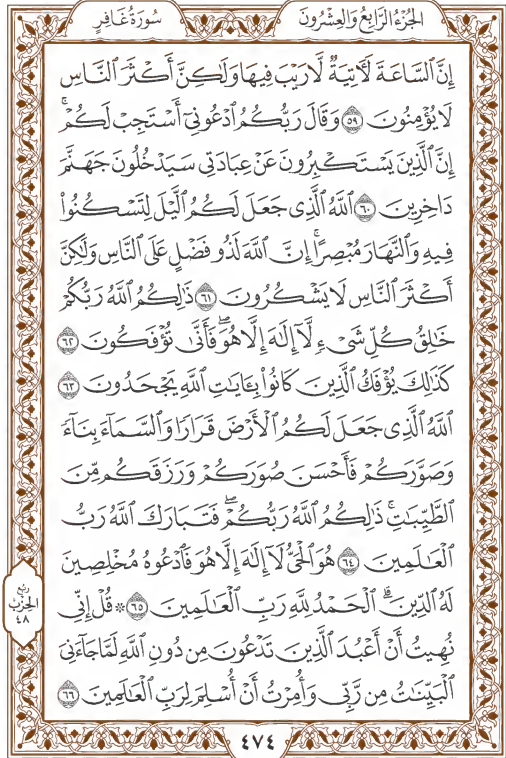 الجُزْءُ الرَّابِعُ وَالعِشْرُونَ
سُورَةُ غَافِرٍ
إِنَّ ٱلسَّاعَةَ لَأٓتِيَةٞ لَّا رَيۡبَ فِيهَا وَلَٰكِنَّ أَكۡثَرَ ٱلنَّاسِ
لَا يُؤۡمِنُونَ ٥٩ وَقَالَ رَبُّكُمُ ٱدۡعُونِيٓ أَسۡتَجِبۡ لَكُمۡۚ
إِنَّ ٱلَّذِينَ يَسۡتَكۡبِرُونَ عَنۡ عِبَادَتِي سَيَدۡخُلُونَ جَهَنَّمَ
دَاخِرِينَ ٦٠ ٱللَّهُ ٱلَّذِي جَعَلَ لَكُمُ ٱلَّيۡلَ لِتَسۡكُنُواْ
فِيهِ وَٱلنَّهَارَ مُبۡصِرًاۚ إِنَّ ٱللَّهَ لَذُو فَضۡلٍ عَلَى ٱلنَّاسِ وَلَٰكِنَّ
أَكۡثَرَ ٱلنَّاسِ لَا يَشۡكُرُونَ ٦١ ذَٰلِكُمُ ٱللَّهُ رَبُّكُمۡ
خَٰلِقُ كُلِّ شَيۡءٖ لَّآ إِلَٰهَ إِلَّا هُوَۖ فَأَنَّىٰ تُؤۡفَكُونَ ٦٢
كَذَٰلِكَ يُؤۡفَكُ ٱلَّذِينَ كَانُواْ بِـَٔايَٰتِ ٱللَّهِ يَجۡحَدُونَ ٦٣
ٱللَّهُ ٱلَّذِي جَعَلَ لَكُمُ ٱلۡأَرۡضَ قَرَارٗا وَٱلسَّمَآءَ بِنَآءٗ
وَصَوَّرَكُمۡ فَأَحۡسَنَ صُوَرَكُمۡ وَرَزَقَكُم مِّنَ
ٱلطَّيِّبَٰتِۚ ذَٰلِكُمُ ٱللَّهُ رَبُّكُمۡۖ فَتَبَارَكَ ٱللَّهُ رَبُّ
ٱلۡعَٰلَمِينَ ٦٤ هُوَ ٱلۡحَيُّ لَآ إِلَٰهَ إِلَّا هُوَ فَٱدۡعُوهُ مُخۡلِصِينَ
لَهُ ٱلدِّينَۗ ٱلۡحَمۡدُ لِلَّهِ رَبِّ ٱلۡعَٰلَمِينَ ٦٥ ۞ قُلۡ إِنِّي
نُهِيتُ أَنۡ أَعۡبُدَ ٱلَّذِينَ تَدۡعُونَ مِن دُونِ ٱللَّهِ لَمَّا جَآءَنِيَ
ٱلۡبَيِّنَٰتُ مِن رَّبِّي وَأُمِرۡتُ أَنۡ أُسۡلِمَ لِرَبِّ ٱلۡعَٰلَمِينَ ٦٦
رُبع
الحِزْب
٤٨
٤٧٤